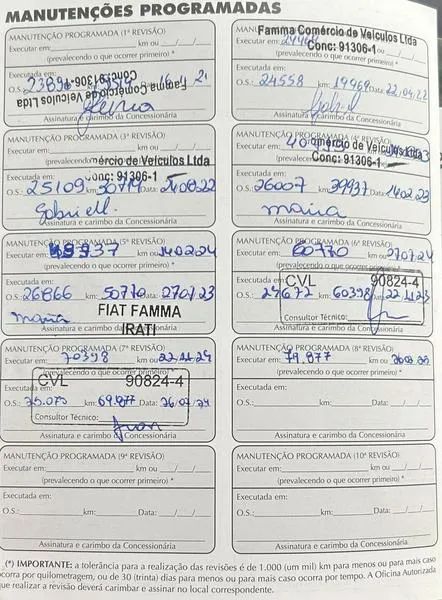 MANUTENÇÕES PROGRAMADAS
MANUTENÇÃO PROGRAMADA (1ª REVISÃO)
Executar em: km ou / /
(prevalecendo o que ocorrer primeiro) *
Executada em:
Famma Comércio de Veículos Ltda
Conc: 91306-1
Assinatura e carimbo da Concessionária
Famma Comércio de Veículos Ltda
Conc: 91306-1
MANUTENÇÃO PROGRAMADA
Executar em:
(prevalecendo o que ocorrer primeiro) *
Executada em:
O.S.: 24558 km: 19969 Data: 22.04.22
Assinatura e carimbo da Concessionária
MANUTENÇÃO PROGRAMADA (3ª REVISÃO)
Executar em:
(prevalecendo
mércio de Veículos Ltda
Conc: 91306-1
Executada em:
O.S.: 25109 km: 30719 Data: 24.08.22
Gabriell.
Assinatura e carimbo da Concessionária
MANUTENÇÃO PROGRAMADA (4ª REVISÃO)
Executar em:
(prevalecendo
omércio de Veículos Ltda
Conc: 91306-1
Executada em:
O.S.: 26007 km: 39937 Data: 14.02.23
maira
Assinatura e carimbo da Concessionária
MANUTENÇÃO PROGRAMADA (5ª REVISÃO)
Executar em: 49937 km ou 14.02.24
(prevalecendo o que ocorrer primeiro) *
Executada em:
O.S.: 26866 km: 50770 Data: 27.07.23
maira
FIAT FAMMA
IRATI
Assinatura e carimbo da Concessionária
MANUTENÇÃO PROGRAMADA (6ª REVISÃO)
Executar em: 60770 km ou 27.07.24
(prevalecendo o que ocorrer primeiro) *
Executada em:
CVL 90824-4
O.S.: 27672 km: 60398 Data: 22.11.23
Consultor Técnico:
Assinatura e carimbo da Concessionária
MANUTENÇÃO PROGRAMADA (7ª REVISÃO)
Executar em: 70398 km ou 22.11.24
(prevalecendo o que ocorrer primeiro) *
Executada em:
CVL 90824-4
km: 69.877 Data: 26/07/24
Consultor Técnico:
Assinatura e carimbo da Concessionária
MANUTENÇÃO PROGRAMADA (8ª REVISÃO)
Executar em: 79.877 km ou
(prevalecendo o que ocorrer primeiro) *
Executada em:
O.S.: km: Data: / /
Assinatura e carimbo da Concessionária
MANUTENÇÃO PROGRAMADA (9ª REVISÃO)
Executar em: km ou / /
(prevalecendo o que ocorrer primeiro) *
Executada em:
O.S.: km: Data: / /
Assinatura e carimbo da Concessionária
MANUTENÇÃO PROGRAMADA (10ª REVISÃO)
Executar em: km ou / /
(prevalecendo o que ocorrer primeiro) *
Executada em:
O.S.: km: Data: / /
Assinatura e carimbo da Concessionária
(*) IMPORTANTE: a tolerância para a realização das revisões é de 1.000 (um mil) km para menos ou para mais caso
ocorra por quilometragem, ou de 30 (trinta) dias para menos ou para mais caso ocorra por tempo. A Oficina Autorizada
que realizar a revisão deverá carimbar e assinar no local correspondente.